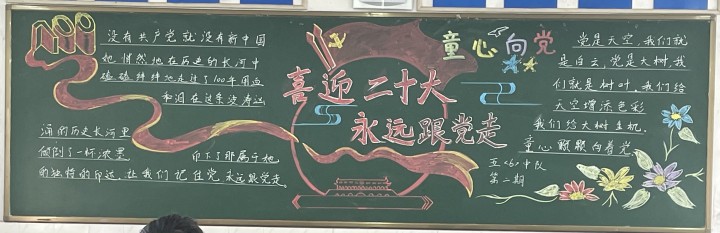 100
没有共产党就没有新中国
她 悄然地在历史的长河中
磕磕绊绊地走过了100年用血
和泪在这条波涛汹
涌的历史长河里
倾倒了一杯浓墨 印下了那属于她
的独特的印迹,让我们记住党永远跟党走。
喜迎二十大
永远跟党走
童心向党
党是天空,我们就
是白云,党是大树,我
们就是树叶,我们给
天空增添色彩
我们给大树生机,
童心颗颗向着党
五<6>中队
第二期